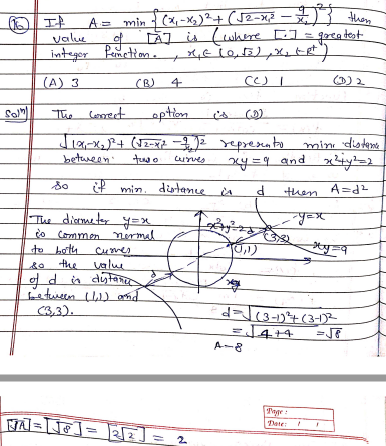 (16) If A = min {(x₁-x₂)² + (√2-x₁² - 9/x₂)²} then
value of [A] is (where [.] = greatest
integer function., x₁ ∈ [0,√2), x₂ ∈ R⁺)
(A) 3 (B) 4 (C) 1 (D) 2
Solⁿ) The correct option is (D)
√(x₁-x₂)² + (√2-x₁² - 9/x₂)² represents min distance
between two curves xy=9 and x²+y²=2
so if min. distance is d then A=d²
The diameter y=x
is common normal
to both curves
so the value
of d is distance
between (1,1) and
(3,3).
x²+y²=2
y=x
(3,3)
(1,1)
xy=9
d = √(3-1)²+(3-1)²
= √4+4 = √8
A-8
Page:
Date: / /
[√A] = [√8] = [2√2] = 2